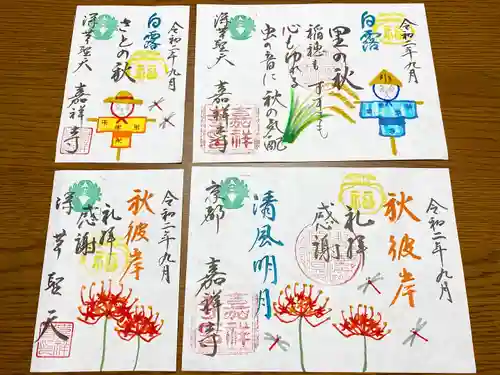 令和二年九月
白露
さとの秋
深草聖天
嘉祥寺
令和二年九月
白露
里の秋
稲穂も すすきも
心もゆれる
虫の音に 秋の気配
深草聖天
嘉祥寺
令和二年九月
秋彼岸
礼拝
感謝
深草聖天
令和二年九月
秋彼岸
礼拝
感謝
清風明月
京都
嘉祥寺